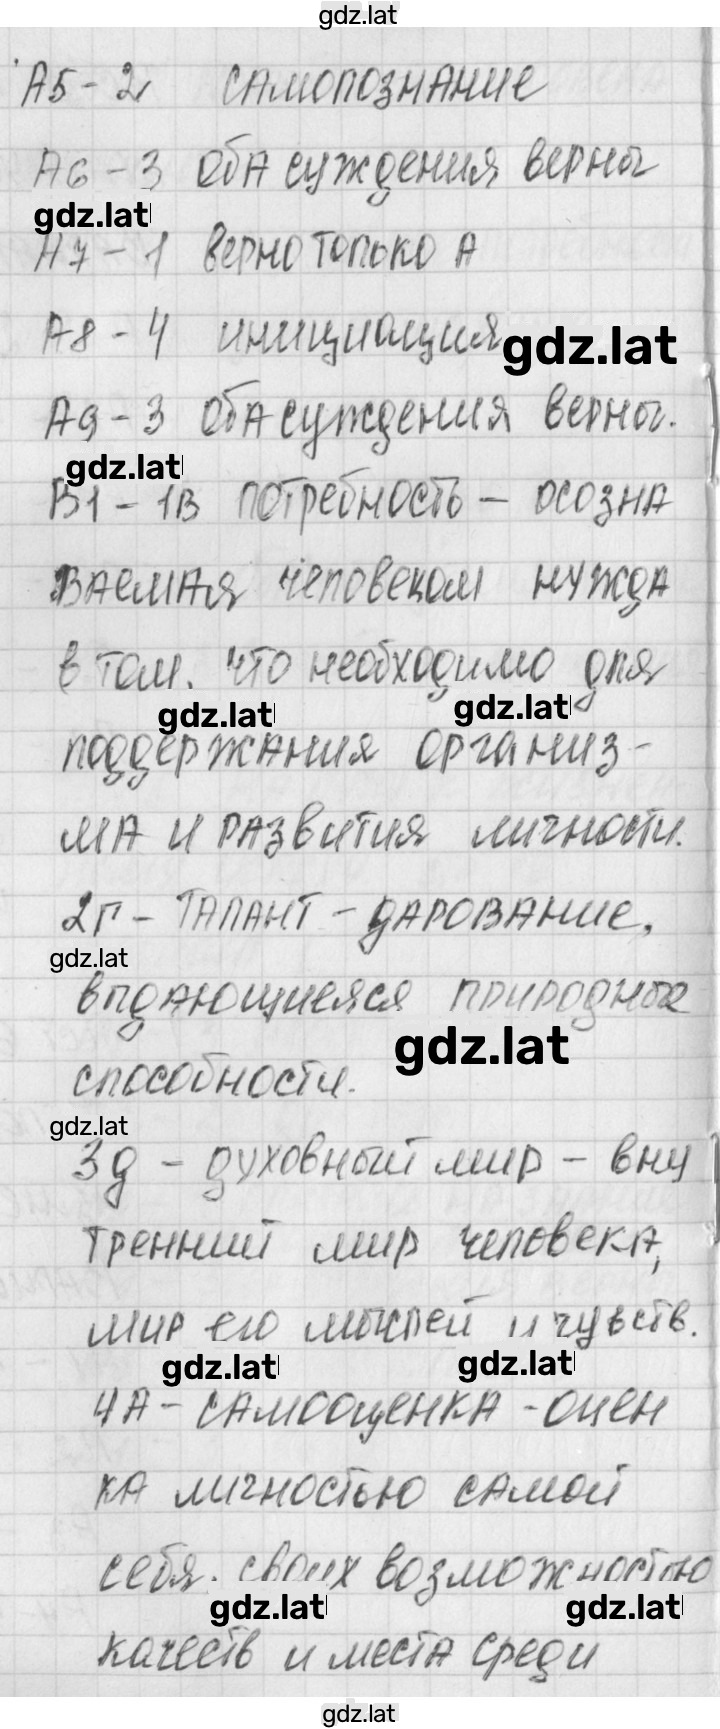 gdz.lat
А5 - 2 самопознание
А6 - 3 оба суждения верны
gdz.lat
А7 - 1 верно только А
А8 - 4 инициация
gdz.lat
А9 - 3 оба суждения верны.
gdz.lat
В1 - 1В потребность - осозна
ваемая человеком нужда
в том. что необходимо для
gdz.lat gdz.lat
поддержания организ-
ма и развития личности.
2Г - талант - дарование,
gdz.lat
выдающиеяся природные
gdz.lat
способности.
gdz.lat
3д - духовный мир - вну
тренний мир человека,
мир его мыслей и чувств.
gdz.lat gdz.lat
4А - самооценка - оцен
ка личностью самой
себя. своих возможностью
gdz.lat gdz.lat
качеств и места среди
gdz.lat